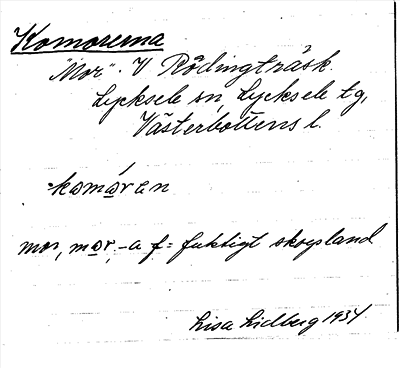 Komorerna
"Mor". V Rödingträsk.
Lycksele sn, Lycksele tg,
Västerbottens l.
kamóran
mor, mor, -a f = fuktigt skogsland
Lisa Lidberg 1934